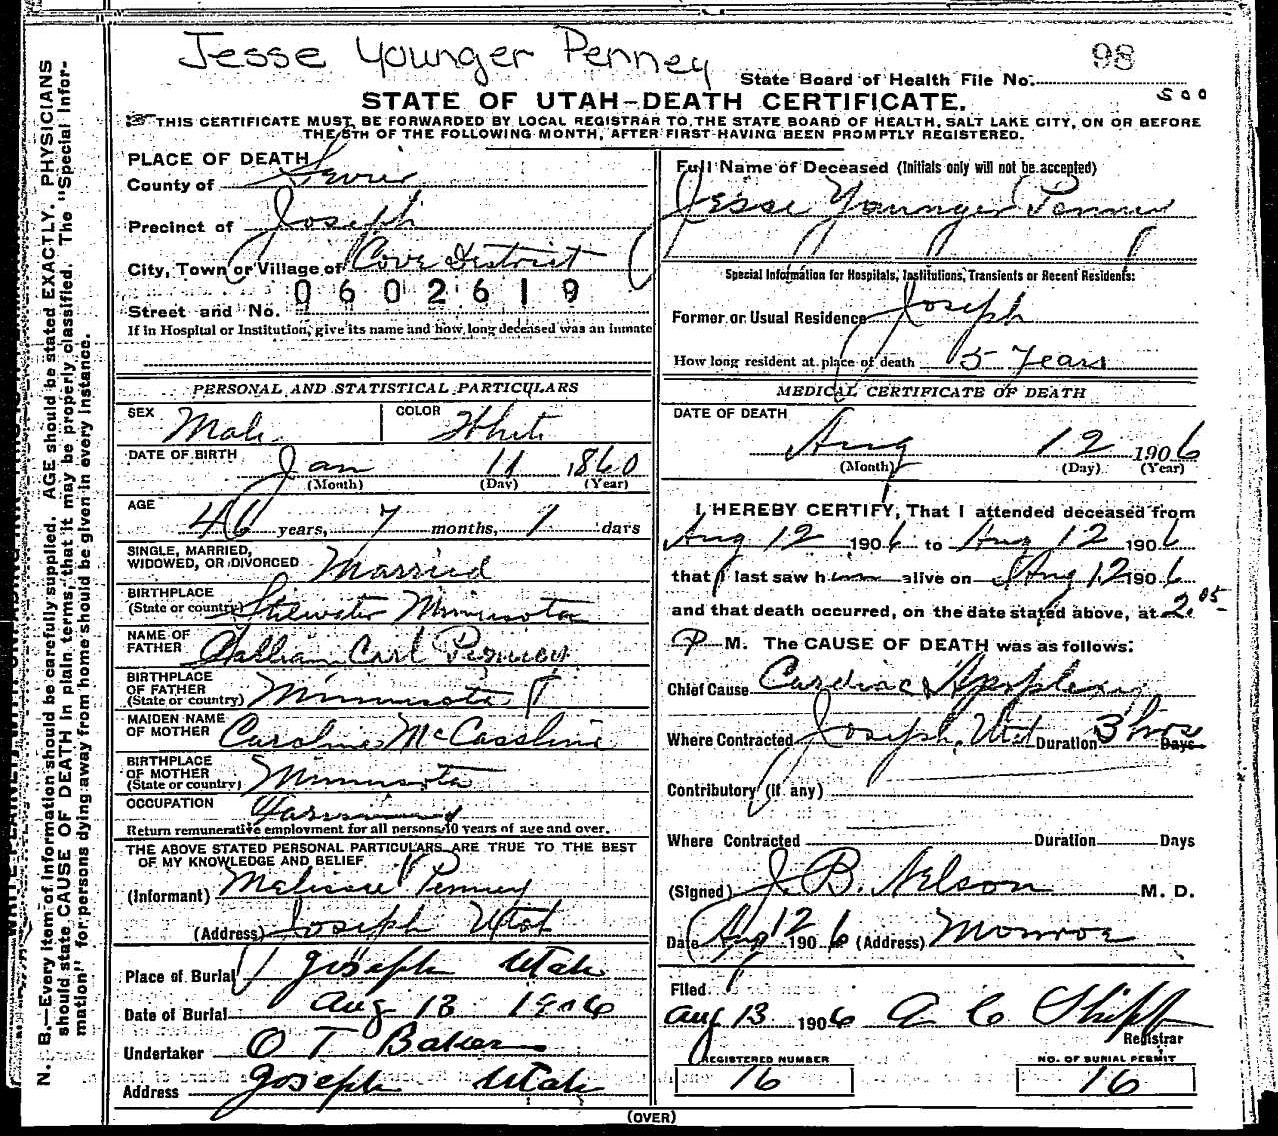 Jesse Younger Penney
State Board of Health File No. 98
500
STATE OF UTAH-DEATH CERTIFICATE.
THIS CERTIFICATE MUST BE FORWARDED BY LOCAL REGISTRAR TO THE STATE BOARD OF HEALTH, SALT LAKE CITY, ON OR BEFORE
THE 5TH OF THE FOLLOWING MONTH, AFTER FIRST HAVING BEEN PROMPTLY REGISTERED.
PLACE OF DEATH
County of Sevier
Precinct of Joseph
City, Town or Village of Cove District
0602619
Street and No.
If in Hospital or Institution, give its name and how long deceased was an inmate
PERSONAL AND STATISTICAL PARTICULARS
SEX Male COLOR White
DATE OF BIRTH Jan 11 1860
(Month) (Day) (Year)
AGE 46 years, 7 months, 1 days
SINGLE, MARRIED,
WIDOWED, OR DIVORCED Married
BIRTHPLACE
(State or country) Minnesota
NAME OF
FATHER William Carl Penney
BIRTHPLACE
OF FATHER
(State or country) Minnesota
MAIDEN NAME
OF MOTHER Caroline McCassline
BIRTHPLACE
OF MOTHER
(State or country) Minnesota
OCCUPATION
Return remunerative employment for all persons 10 years of age and over.
THE ABOVE STATED PERSONAL PARTICULARS ARE TRUE TO THE BEST
OF MY KNOWLEDGE AND BELIEF.
(Informant) Melissie Penney
(Address) Joseph Utah
Place of Burial Joseph Utah
Date of Burial Aug 13 1906
Undertaker O T Baker
Address Joseph Utah
Full Name of Deceased (Initials only will not be accepted)
Jesse Younger Penney
Special Information for Hospitals, Institutions, Transients or Recent Residents:
Former or Usual Residence Joseph
How long resident at place of death 5 Years
MEDICAL CERTIFICATE OF DEATH
DATE OF DEATH
Aug 12 1906
(Month) (Day) (Year)
I HEREBY CERTIFY, That I attended deceased from
Aug 12 1906 to Aug 12 1906
that I last saw him alive on Aug 12 1906
and that death occurred, on the date stated above, at 2.05
P M. The CAUSE OF DEATH was as follows:
Chief Cause Cardiac Apoplexy
Where Contracted Joseph, Utah Duration 3 hrs Days
Contributory (if any)
Where Contracted Duration Days
(Signed) J. B. Nelson M. D.
Date Aug 12 1906 (Address) Monroe
Filed
Aug 13 1906 A C Shipp
Registrar
REGISTERED NUMBER NO. OF BURIAL PERMIT
16 16
(OVER)
N. B.—Every item of information should be carefully supplied. AGE should be stated EXACTLY. PHYSICIANS
should state CAUSE OF DEATH in plain terms, that it may be properly classified. The "Special Infor-
mation" for persons dying away from home should be given in every instance.